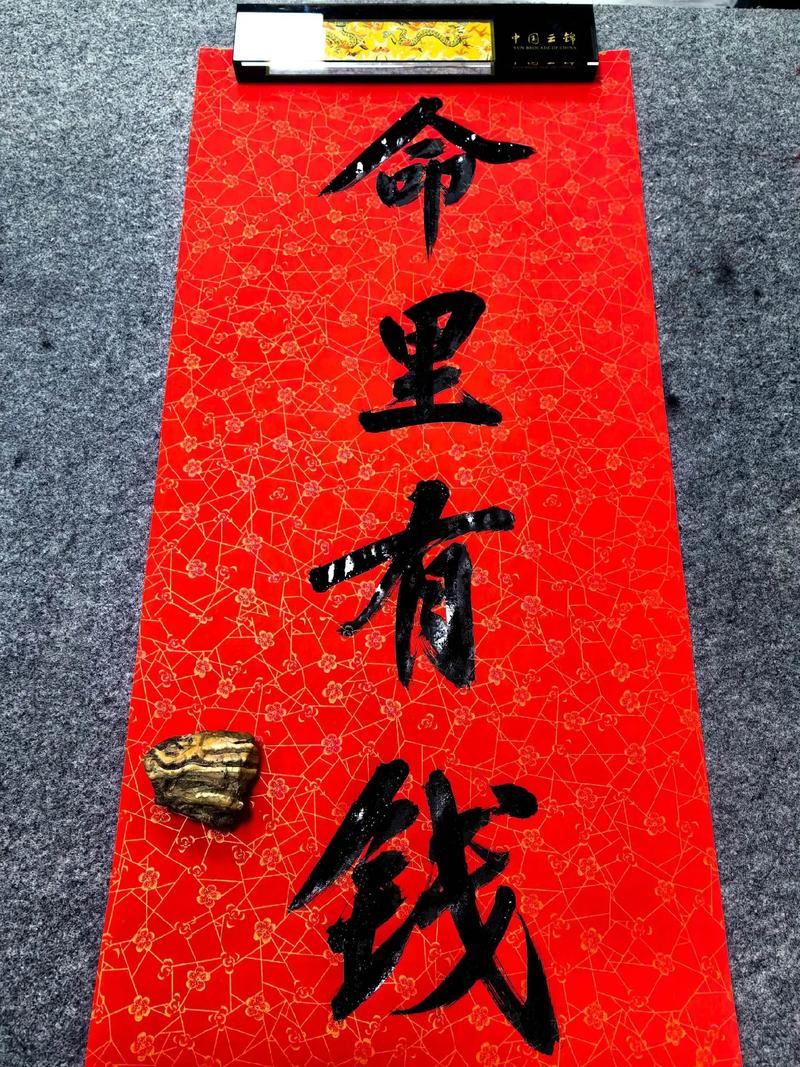 中国云锦
YUN BROCADE OF CHINA
命里有钱